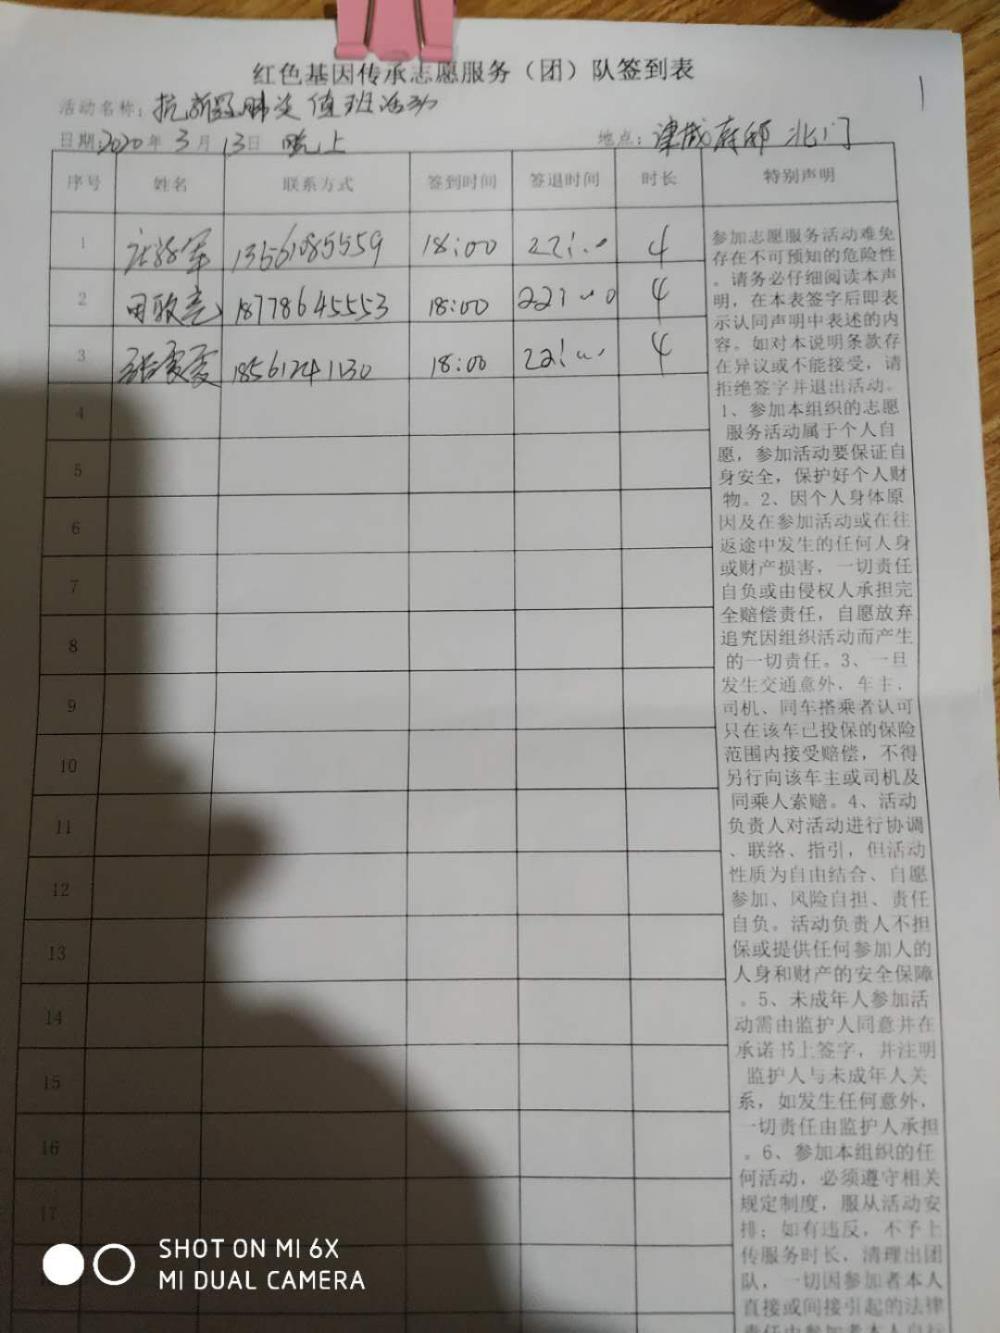 红色基因传承志愿服务（团）队签到表
活动名称：抗新冠肺炎值班活动
日期：2020年3月13日 晚上 地点： 府邸 北门
序号 姓名 联系方式 签到时间 签退时间 时长 特别声明
1 13561085559 18:00 22:00 4
2 田歌亮 18778645553 18:00 22:00 4
3 18561241130 18:00 22:00 4
4
5
6
7
8
9
10
11
12
13
14
15
16
17
参加志愿服务活动难免
存在不可预知的危险性
。请务必仔细阅读本声
明，在本表签字后即表
示认同声明中表述的内
容。如对本说明条款存
在异议或不能接受，请
拒绝签字并退出活动。
1、参加本组织的志愿
服务活动属于个人自
愿，参加活动要保证自
身安全，保护好个人财
物。2、因个人身体原
因及在参加活动或在往
返途中发生的任何人身
或财产损害，一切责任
自负或由侵权人承担完
全赔偿责任，自愿放弃
追究因组织活动而产生
的一切责任。3、一旦
发生交通意外，车主、
司机、同车搭乘者认可
只在该车已投保的保险
范围内接受赔偿，不得
另行向该车主或司机及
同乘人索赔。4、活动
负责人对活动进行协调
、联络、指引，但活动
性质为自由结合、自愿
参加、风险自担、责任
自负。活动负责人不担
保或提供任何参加人的
人身和财产的安全保障
。5、未成年人参加活
动需由监护人同意并在
承诺书上签字，并注明
监护人与未成年人关
系，如发生任何意外，
一切责任由监护人承担
。6、参加本组织的任
何活动，必须遵守相关
规定制度，服从活动安
排；如有违反，不予上
传服务时长，清理出团
队，一切因参加者本人
直接或间接引起的法律
责任由参加者本人自行
SHOT ON MI 6X
MI DUAL CAMERA